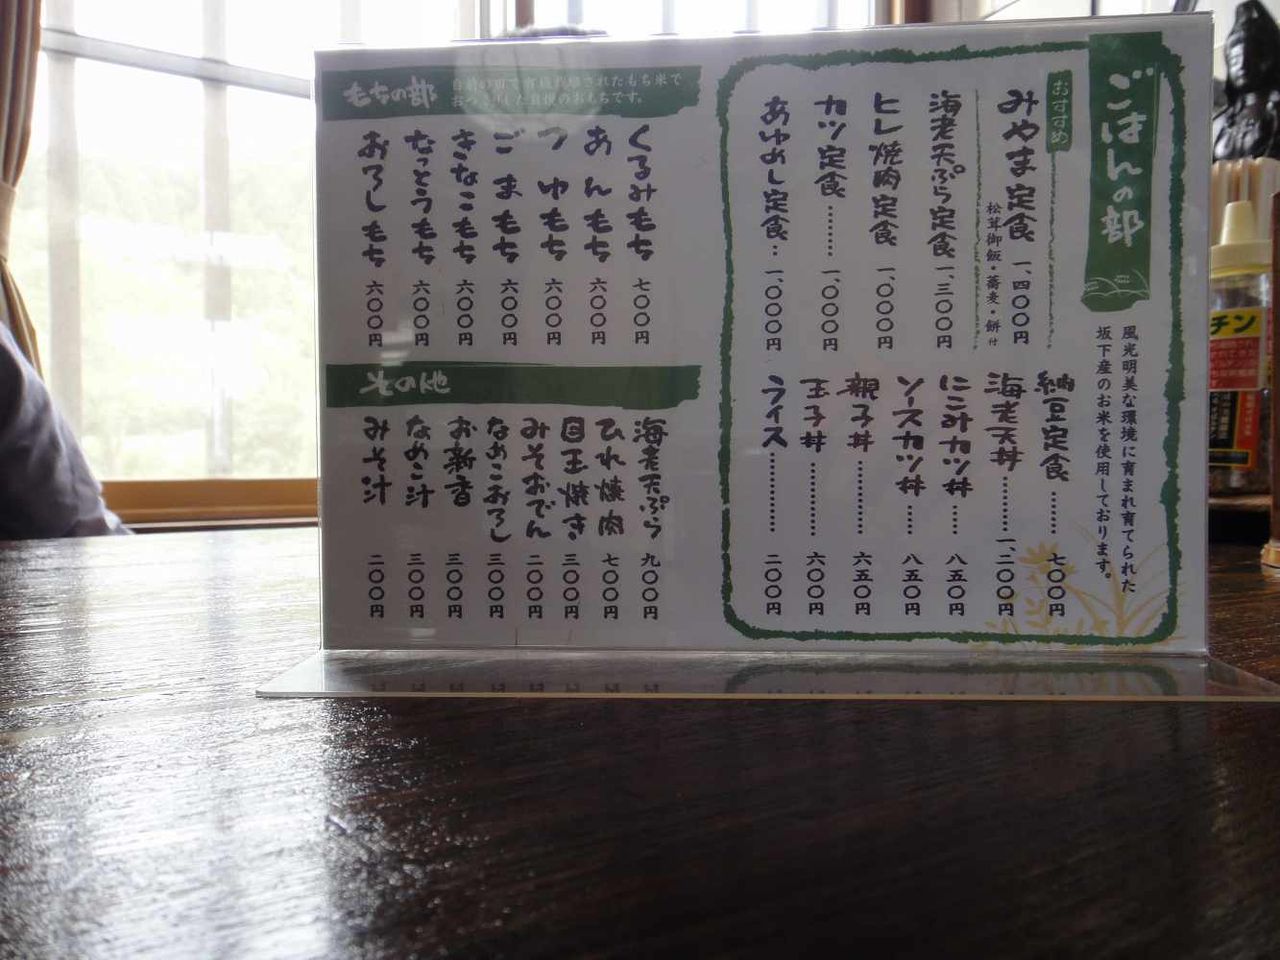 ごはんの部
風光明美な環境に育まれ育てられた
坂下産のお米を使用しております。
おすすめ
みやま定食 一、四〇〇円
松茸御飯・蕎麦・餅付
海老天ぷら定食 一、三〇〇円
ヒレ焼肉定食 一、〇〇〇円
カツ定食……… 一、〇〇〇円
あゆめし定食… 一、〇〇〇円
納豆定食……… 七〇〇円
海老天丼……… 一、二〇〇円
にこみカツ丼…… 八五〇円
ソースカツ丼…… 八五〇円
親子丼………… 六五〇円
玉子丼………… 六〇〇円
ライス………… 二〇〇円
もちの部
くるみもち 七〇〇円
あんもち 六〇〇円
つゆもち 六〇〇円
ごまもち 六〇〇円
きなこもち 六〇〇円
なっとうもち 六〇〇円
おろしもち 六〇〇円
その他
海老天ぷら 九〇〇円
ひれ焼肉 七〇〇円
目玉焼き 三〇〇円
みそおでん 二〇〇円
なめこおろし 三〇〇円
お新香 三〇〇円
なめこ汁 三〇〇円
みそ汁 二〇〇円
チン